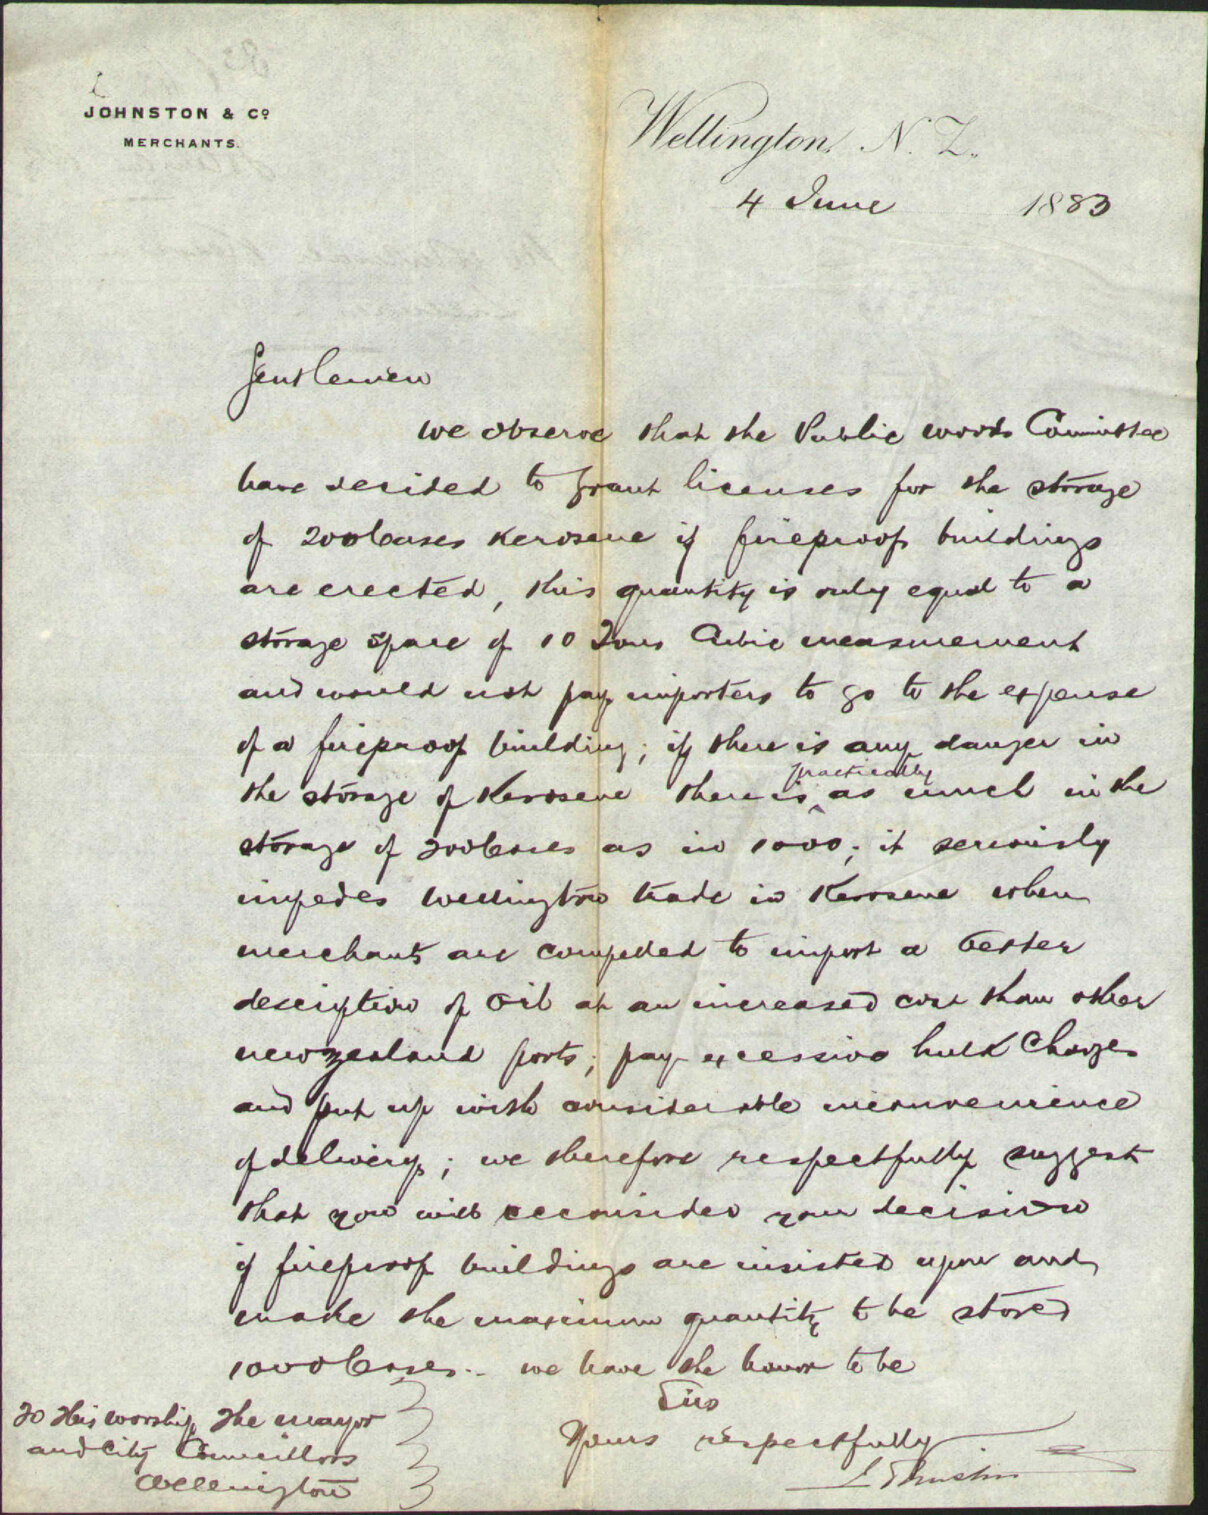 JOHNSTON & Co
MERCHANTS.
Wellington, N. Z.,
4 June 1883
Gentlemen
We observe that the Public Works Committee
have decided to grant licenses for the storage
of 200 Cases Kerosene if fireproof buildings
are erected, this quantity is only equal to a
storage space of 10 Tons Cubic measurement
and would not pay importers to go to the expense
of a fireproof building; if there is any danger in
the storage of Kerosene there is practically as much in the
storage of 200 Cases as in 1000; it seriously
impedes Wellington trade in Kerosene when
merchants are compelled to import a better
description of Oil at an increased cost than other
New Zealand ports; pay excessive hulk Charges
and put up with considerable inconvenience
of delivery; we therefore respectfully suggest
that you will reconsider your decision
if fireproof buildings are insisted upon and
make the maximum quantity to be stored
1000 Cases. - we have the honor to be
Sirs
Yours respectfully
To His worship the mayor
and City Councillors
Wellington